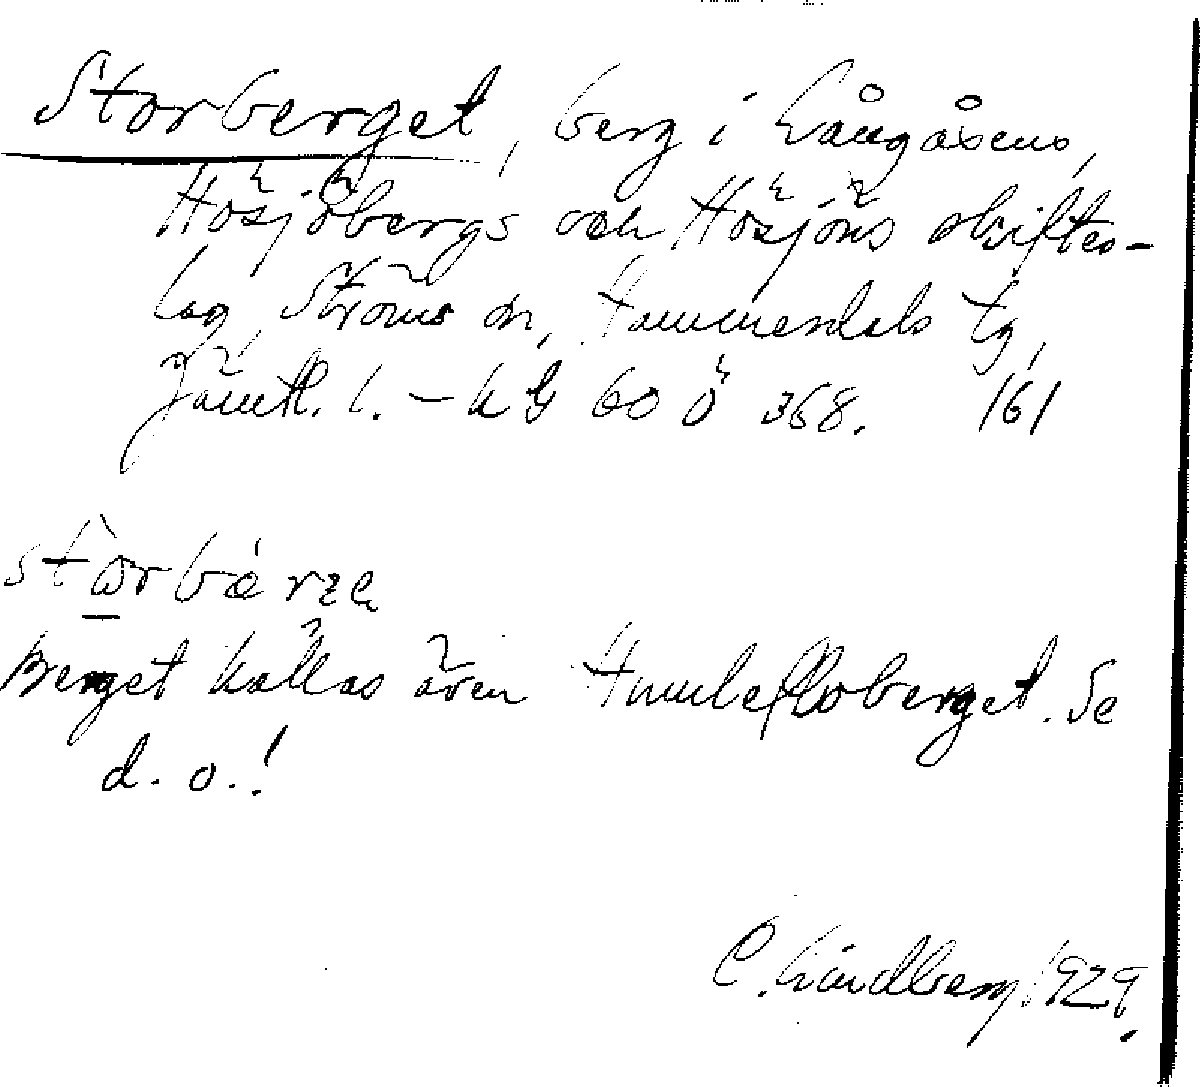 Storberget, berg i Långåsens,
Hösjöbergs och Hösjöns skiftes-
lag, Ströms sn, Hammerdals tg,
Jämtl. l. – k G 60 Ö 368. 161
stωrbærʒɐ
Berget kallas även Humlefloberget. Se
d. o.!
C. Lindberg 1929.